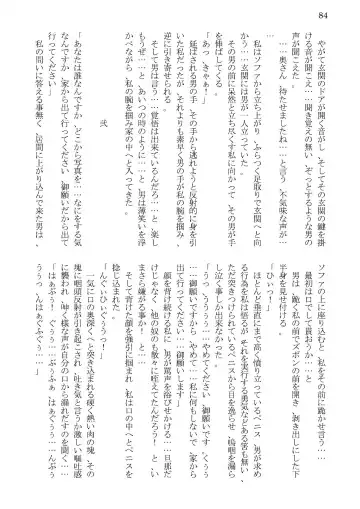 84
やがて玄関のドアが開く音が、そしてその玄関の鍵を掛
ける音が聞こえ…聞き覚えの無い、ぞっとするような男の
声が聞こえた。
「……奥さん、待たせましたね……」と言う、不気味な声が
…。
私はソファから立ち上がり、ふらつく足取りで玄関へと向
かう……玄関には男が一人立っていた。
その男の前に呆然と立ち尽くす私に向かって、男が私に手
を伸ばしてくる。
「あっ、きゃぁ！」
延ばされる男の手が、その手から逃れようと反射的に身を引
いた私だったが、それよりも素早く男の手が私の腕を掴み、
逆に引き寄せられる。
そして男は言う…「覚悟は出来ているんだろ……、楽し
もうぜ……と、あいつの時のように…」、男は薄笑いを浮
かべながら、私の腕を掴み家の中へと入ってきた。
弐
「あなたは誰なんですか、どこから写真を……なにをする気
なんですか、家から出て行ってください、御願いだから出て
行ってください！」
私の問いに答える事無く、居間に上がり込んで来た男は、
ソファの上に座り込むと、私をその前に跪かせ言う……
「最初は口でして貰おうか…」と
男は、跪く私の前でズボンの前を開き、剥き出しにした下
半身を見せ付ける。
「ひぃっ！」
ほとんど垂直にまで高く憤り立っているペニス、男が求め
る行為を私は悟るが、それを実行する勇気などある筈も無く、
ただ突きつけられているペニスから目を逸らせ、嗚咽を漏ら
し泣く事しか出来なかった。
「うっ、うううっ……やめてください、御願いです、くぅっ
……御願いですから……やめて……私に何もしないで、家から
出て行ってください……御願いします！」
顔を背け続ける私に、男が罵声を浴びせかける…「旦那だ
けじゃなく、他の男のも散々に咥えてたんだろう！、とい
まさら嫌がる事か！」と
そして背けた顔を強引に掴まれ、私は口の中へとペニスを
捻じ込まれた。
「んぐぃいひいぐぅぅっ！」
一気に口の奥深くへと突き込まれる硬く熱い肉の塊、その
塊に咽頭反射が引き起こされ、吐き気と言うか激しい嘔吐感
に襲われ、呻く様な声が自分の口から漏れだすのを聞く…
「はぁぷぅ！、ぐぅぅ…ぷぅふぁ、はぁぐぅっ！、んぷぅ
ううっ、んはぁぐふぐぅっ…」